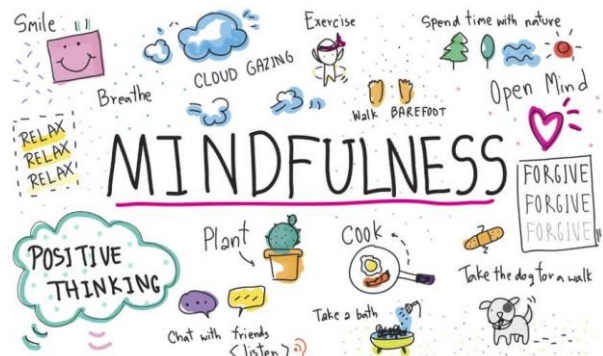 Smile
Breathe
CLOUD GAZING
Exercise
Spend time with nature
Walk BAREFOOT
Open Mind
RELAX
RELAX
RELAX
MINDFULNESS
FORGIVE
FORGIVE
FORGIVE
POSITIVE
THINKING
Plant
Cook
Take the dog for a walk
Chat with friends
<listen>
Take a bath